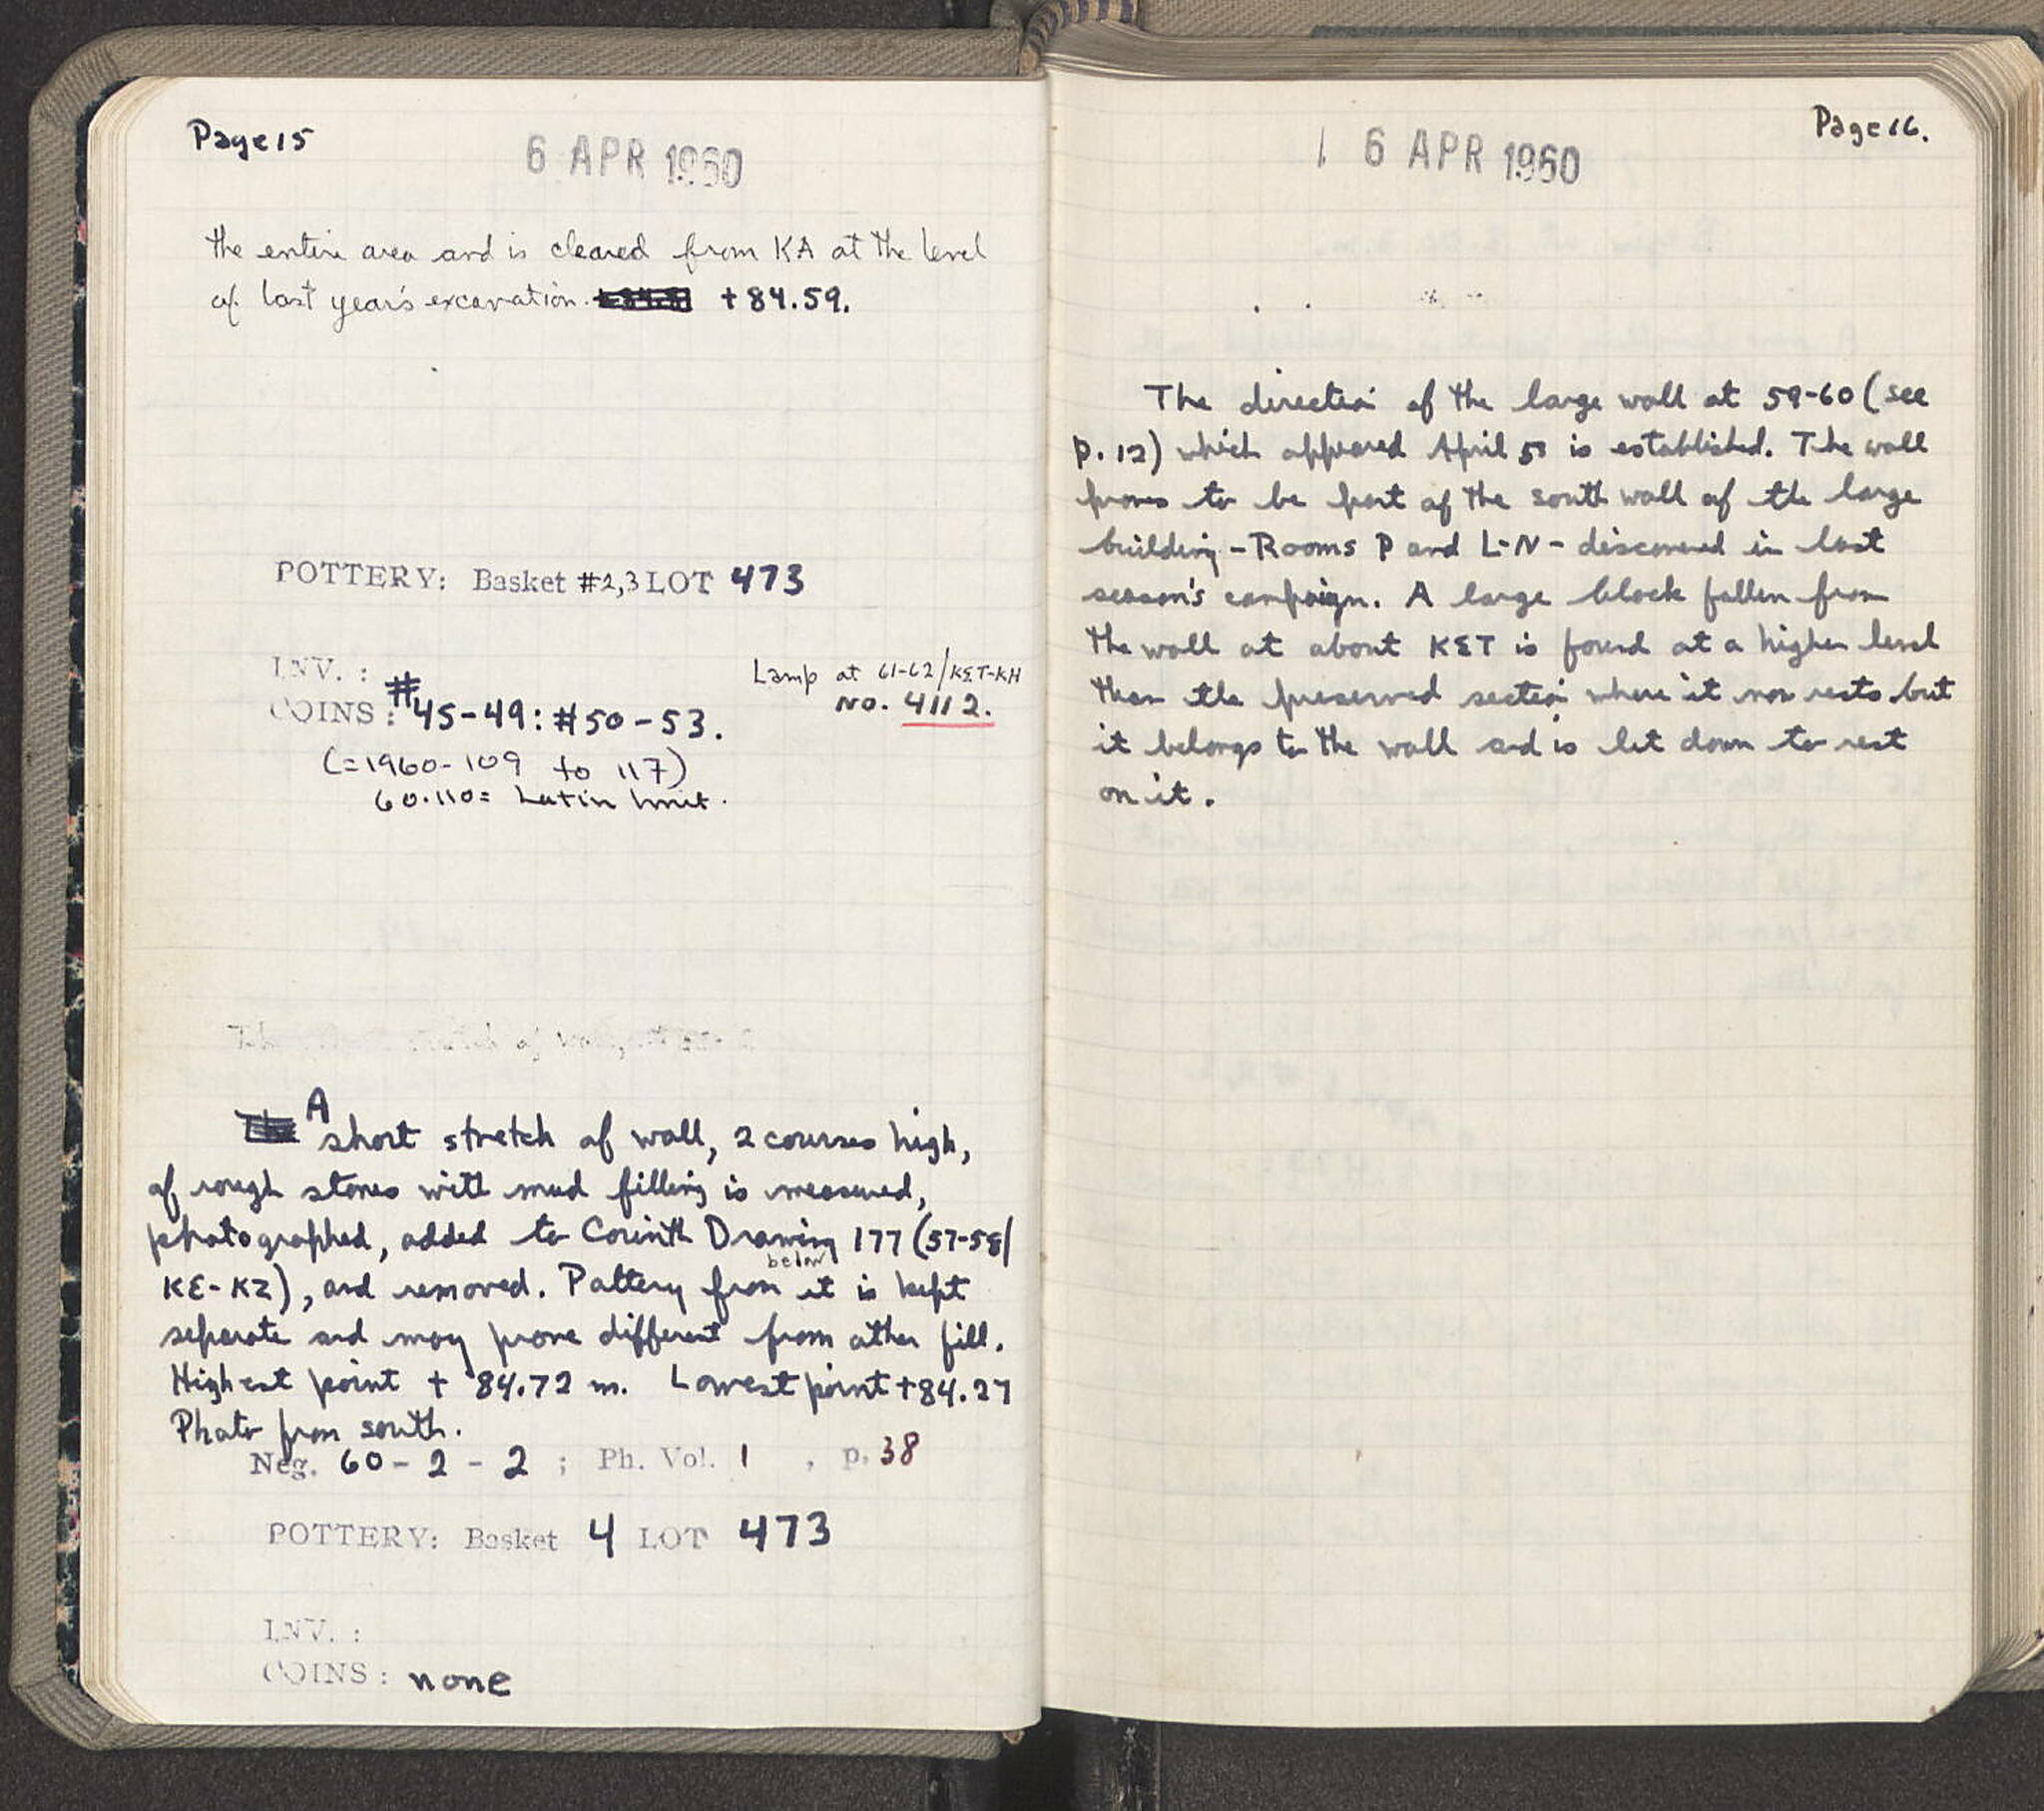 Page 15
6 APR 1960
the entire area and is cleared from KA at the level
of last year's excavation. +84.59.
POTTERY: Basket #2,3 LOT 473
INV. :
Lamp at 61-62/KΣT-KH
NO. 4112.
COINS: #45-49: #50-53.
(=1960-109 to 117)
60.110= Latin Imit.
A
short stretch of wall, 2 courses high,
of rough stones with mud filling is measured,
photographed, added to Corinth Drawing 177 (57-58/
KE-KZ), and removed. Pottery from below it is kept
separate and may prove different from other fill.
Highest point + 84.72 m. Lowest point +84.27
Photo from south.
Neg. 60-2-2 ; Ph. Vol. 1 , p. 38
POTTERY: Basket 4 LOT 473
INV. :
COINS: none
Page 16.
6 APR 1960
The direction of the large wall at 59-60 (see
p. 12) which appeared April 5 is established. The wall
proves to be part of the south wall of the large
building - Rooms P and L-N - discovered in last
season's campaign. A large block fallen from
the wall at about KΣT is found at a higher level
than the preserved section where it now rests but
it belongs to the wall and is let down to rest
on it.